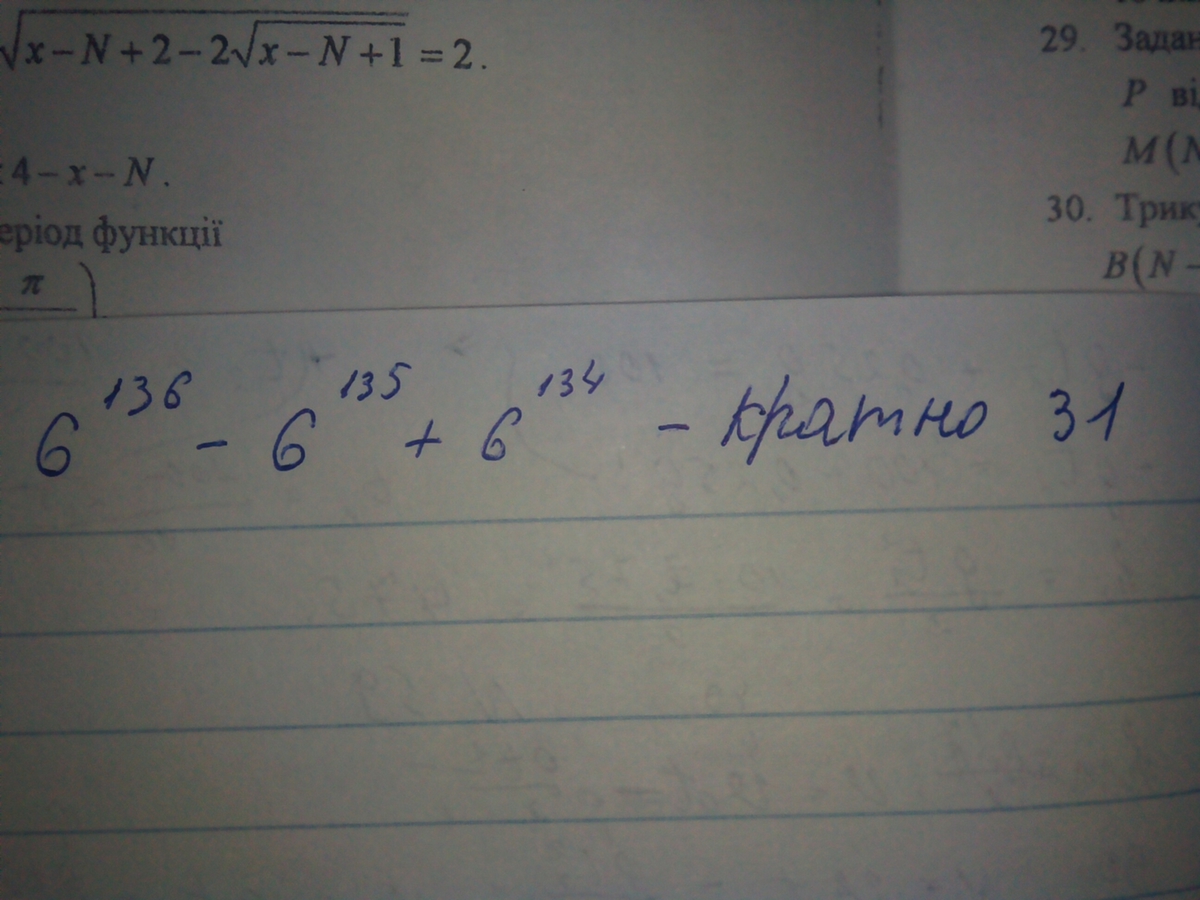 √x−N+2−2√x−N+1 = 2.
4−x−N.
еріод функції
π
29. Задан
P ві
M(N
30. Трик
B(N −
6^136 − 6^135 + 6^134 − кратно 31